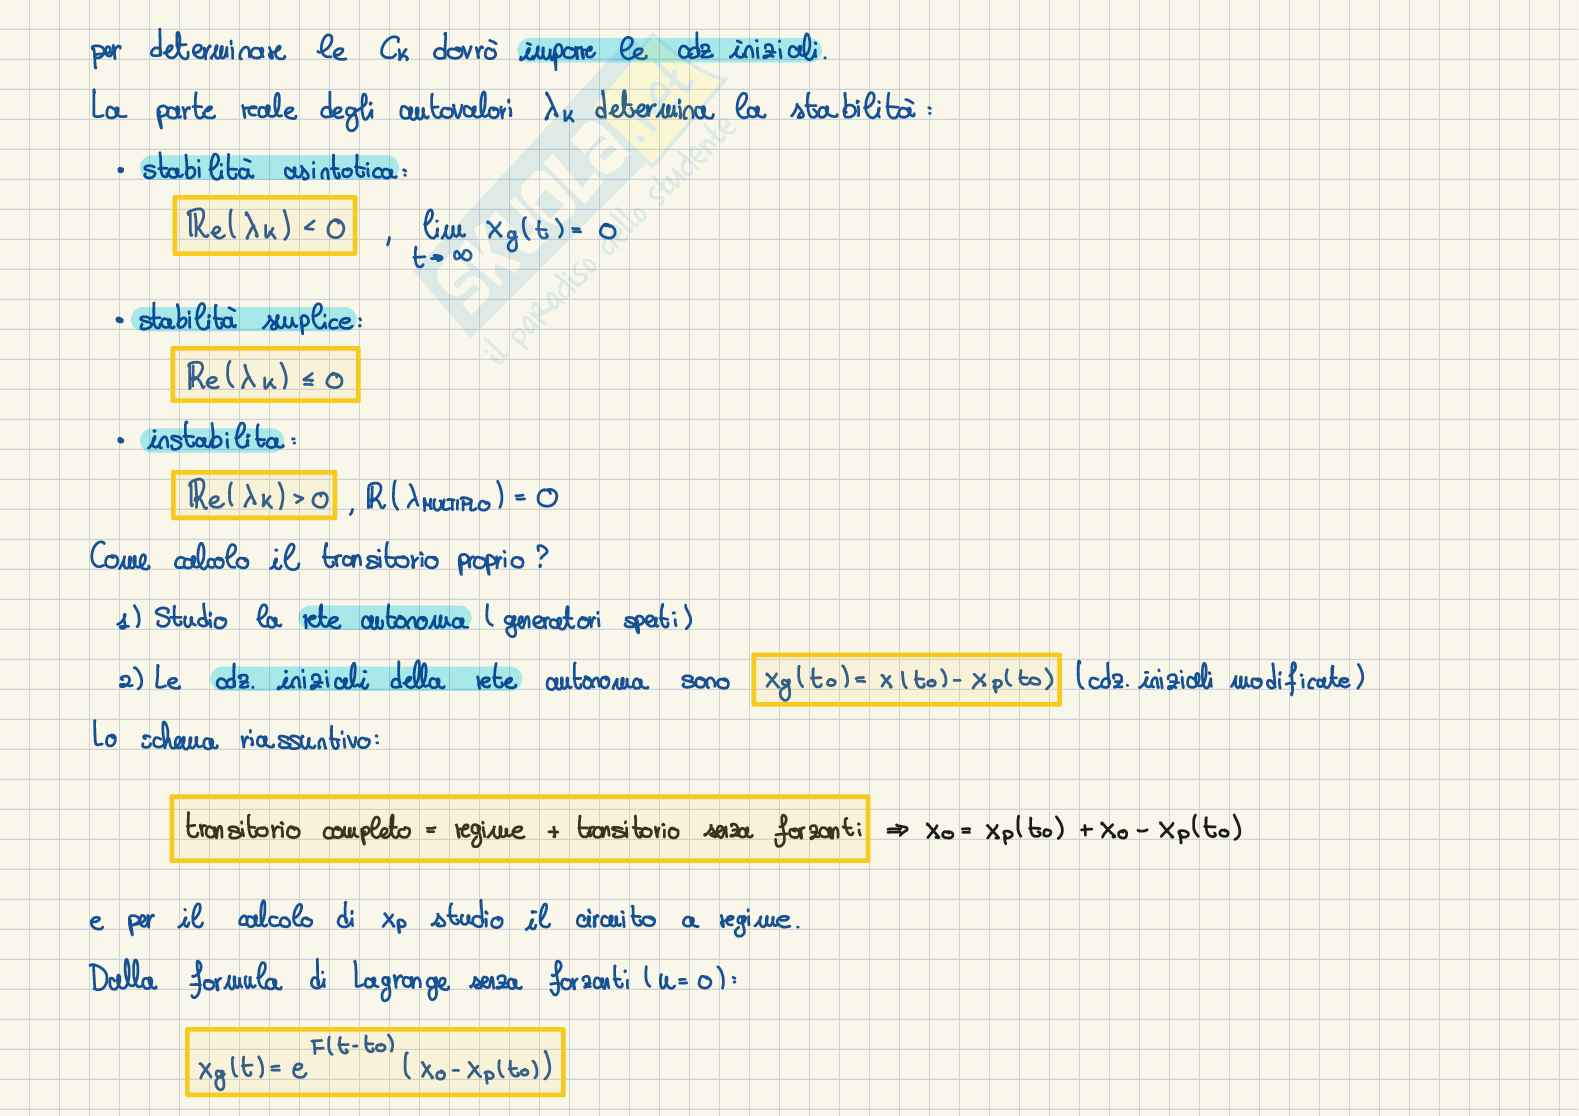 per determinare le Ck dovrò imporre le cdz iniziali.
La parte reale degli autovalori λk determina la stabilità:
• stabilità asintotica:
Re(λk) < 0 , lim xg(t) = 0
t→∞
• stabilità semplice:
Re(λk) ≤ 0
• instabilita:
Re(λk) > 0 , R(λMULTIPLO) = 0
Come calcolo il transitorio proprio?
1) Studio la rete autonoma (generatori spenti)
2) Le cdz. iniziali della rete autonoma sono xg(t0) = x(t0) - xp(t0) (cdz. iniziali modificate)
Lo schema riassuntivo:
transitorio completo = regime + transitorio senza forzanti ⇒ x0 = xp(t0) + x0 - xp(t0)
e per il calcolo di xp studio il circuito a regime.
Dalla formula di Lagrange senza forzanti (u = 0):
xg(t) = e^F(t-t0) (x0 - xp(t0))
SKUOLA.net
il paradiso dello studente